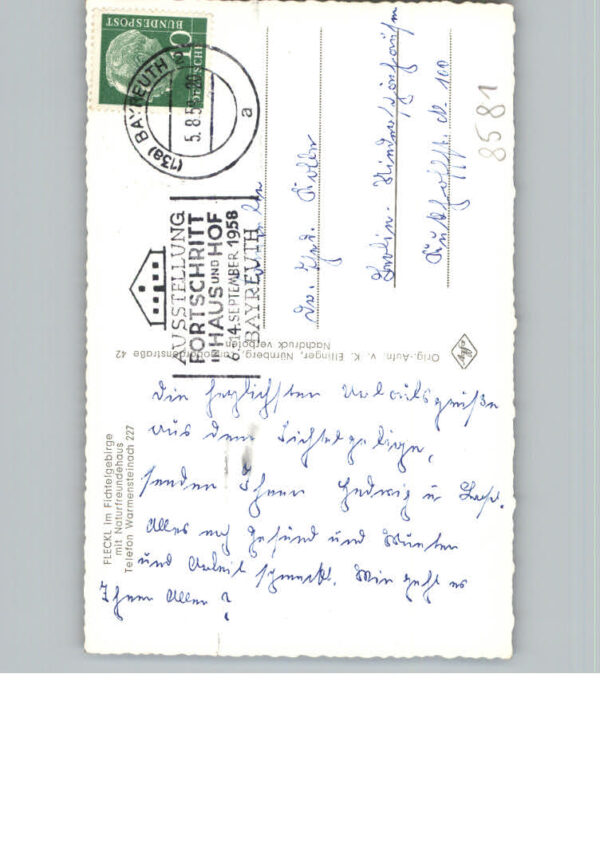 DEUTSCHE
BUNDESPOST
10
(13a) BAYREUTH 2
5.8.58
a
AUSSTELLUNG
FORTSCHRITT
IN HAUS UND HOF
6.-14. SEPTEMBER 1958
BAYREUTH
Berlin-
100
8581
Orig.-Aufn. v. K. Ellinger, Nürnberg, 42
Nachdruck verboten
Agfa
FLECKL im Fichtelgebirge
mit Naturfreundehaus
Telefon Warmensteinach 227
Die herzlichsten Urlaubsgrüße
aus dem Fichtelgebirge,
senden Ihnen Hedwig u
Alles noch gesund und munter
und Arbeit schmeckt. Wie geht es
Ihnen Allen?